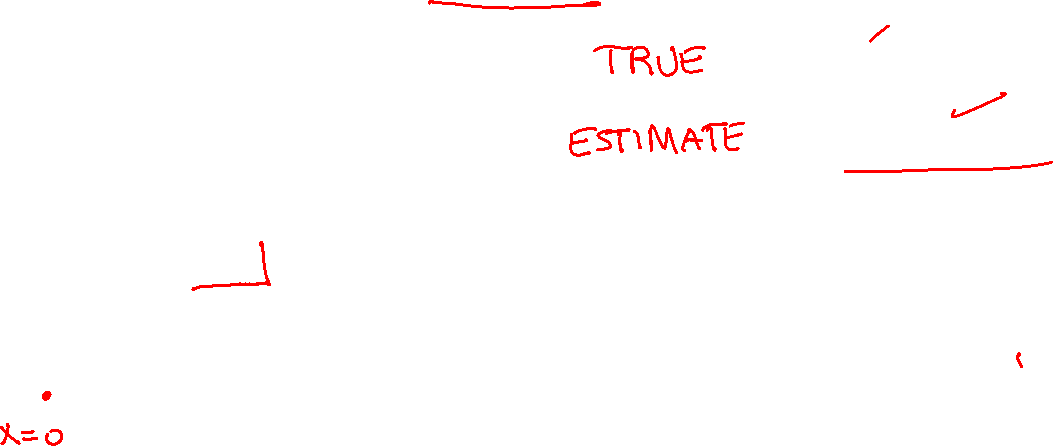 TRUE
ESTIMATE
x=0